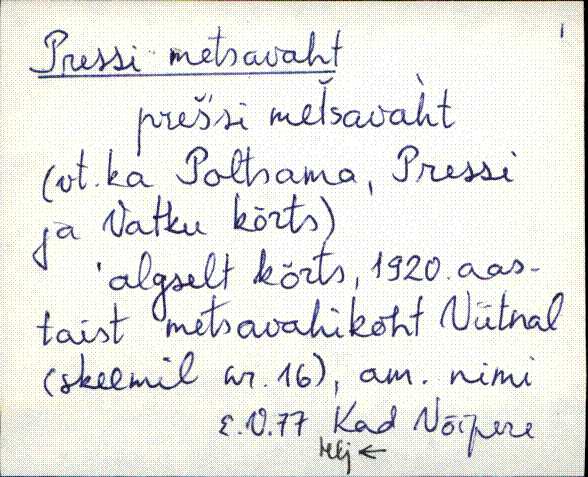 1
Pressi metsavaht
preš's'i metsavàht
(vt. ka Poltsama, Pressi
ja Vatku kõrts)
'algselt kõrts, 1920. aas-
taist metsavahikoht Viitnal
(skeemil nr. 16), am. nimi
E.V.77 Kad Võipere
Hlj ←